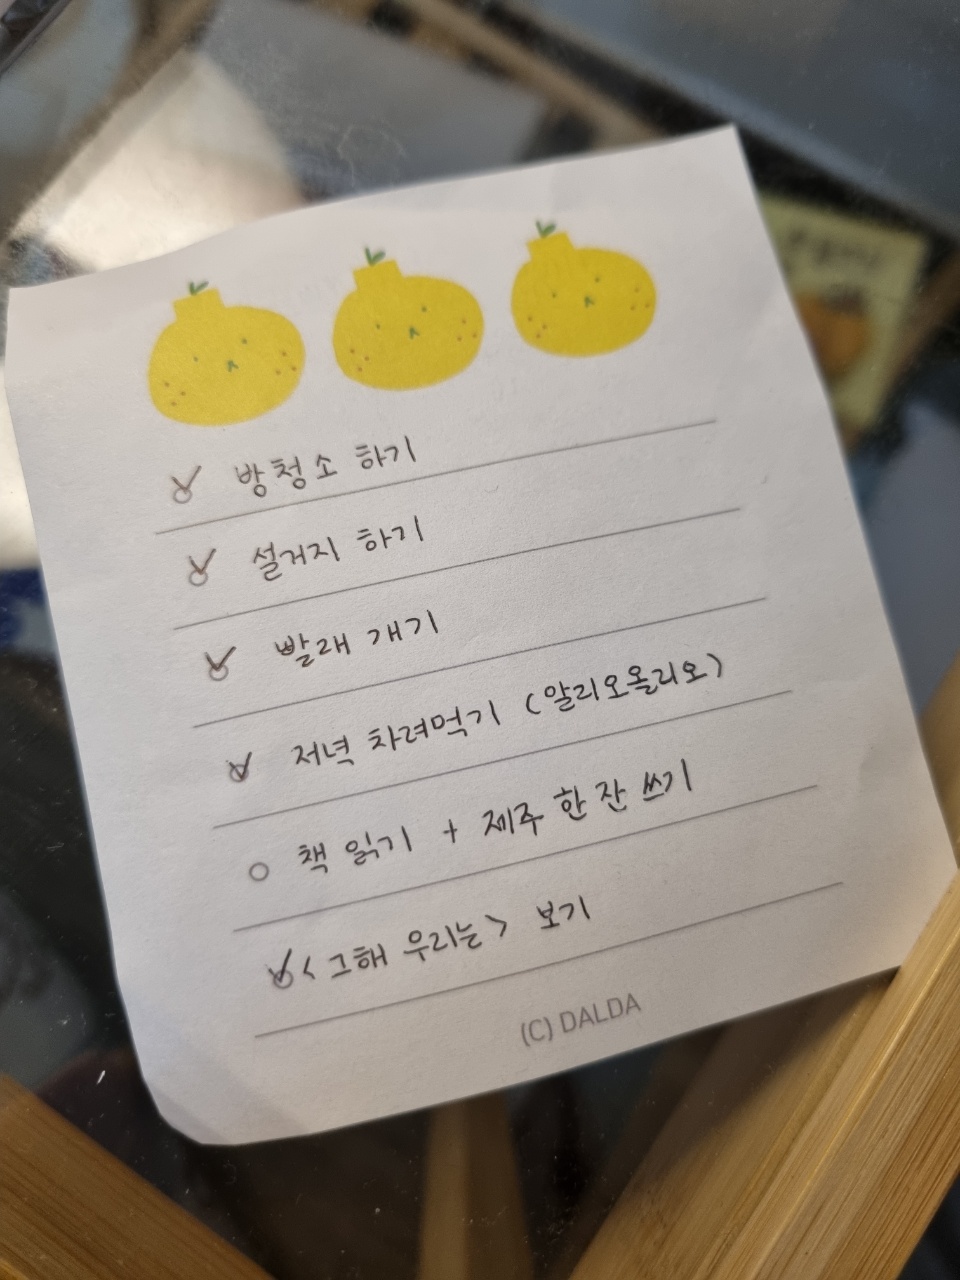 방청소 하기
설거지 하기
빨래 개기
저녁 차려먹기 (알리오올리오)
책 읽기 + 제주 한 잔 쓰기
<그해 우리는> 보기
(C) DALDA